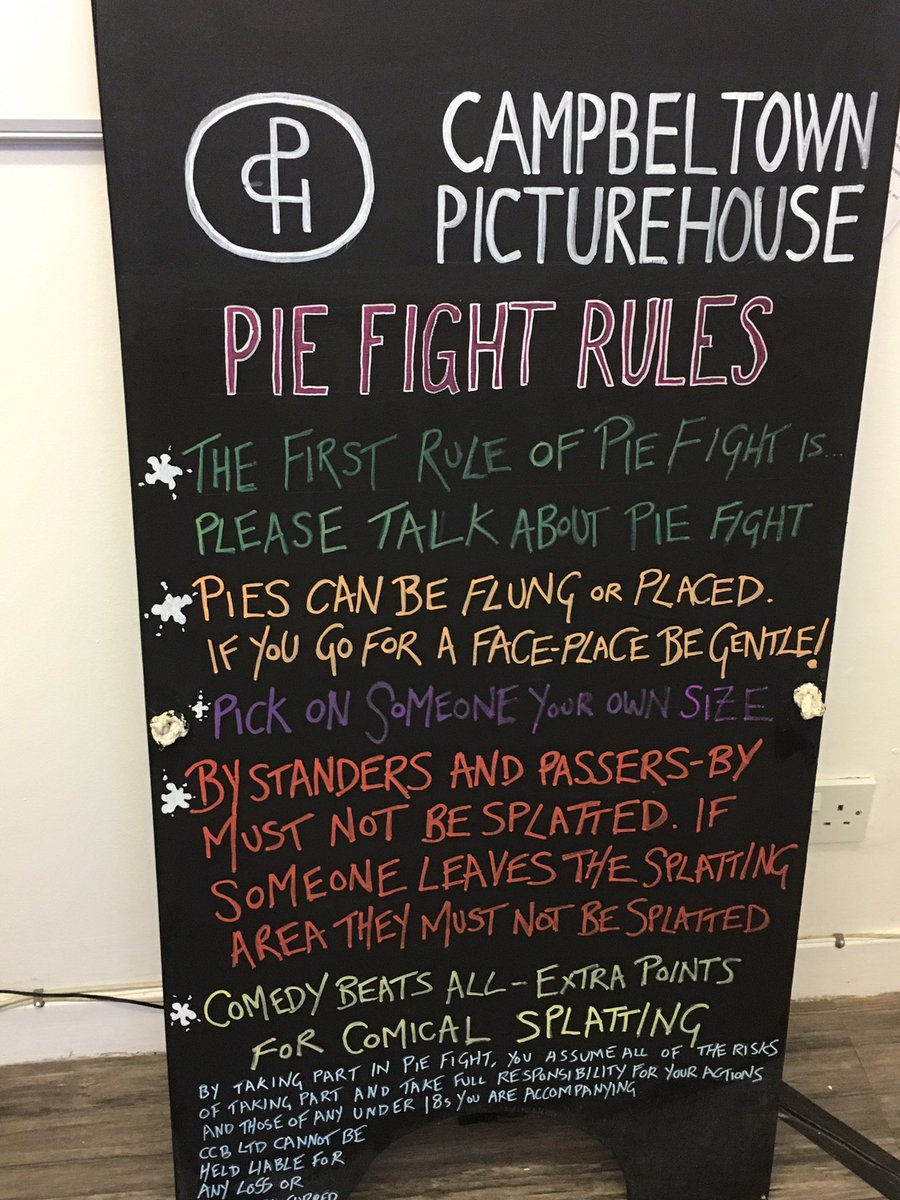 CPH
CAMPBELTOWN
PICTUREHOUSE
PIE FIGHT RULES
THE FIRST RULE OF PIE FIGHT IS...
PLEASE TALK ABOUT PIE FIGHT
PIES CAN BE FLUNG OR PLACED.
IF YOU GO FOR A FACE-PLACE BE GENTLE!
PICK ON SOMEONE YOUR OWN SIZE
BYSTANDERS AND PASSERS-BY
MUST NOT BE SPLATTED. IF
SOMEONE LEAVES THE SPLATTING
AREA THEY MUST NOT BE SPLATTED
COMEDY BEATS ALL - EXTRA POINTS
FOR COMICAL SPLATTING
BY TAKING PART IN PIE FIGHT, YOU ASSUME ALL OF THE RISKS
OF TAKING PART AND TAKE FULL RESPONSIBILITY FOR YOUR ACTIONS
AND THOSE OF ANY UNDER 18S YOU ARE ACCOMPANYING
CCB LTD CANNOT BE
HELD LIABLE FOR
ANY LOSS OR